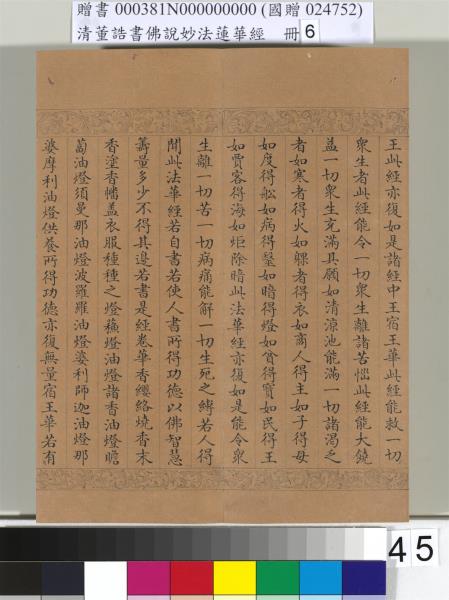 贈書 000381N000000000 (國贈 024752)
清董誥書佛說妙法蓮華經 冊 6
王此經亦復如是諸經中王宿王華此經能救一切
眾生者此經能令一切眾生離諸苦惱此經能大饒
益一切眾生充滿其願如清涼池能滿一切諸渴乏
者如寒者得火如躶者得衣如商人得主如子得母
如度得舩如病得毉如暗得燈如貧得寶如民得王
如賈客得海如炬除暗此法華經亦復如是能令眾
生離一切苦一切病痛能解一切生死之縛若人得
聞此法華經若自書若使人書所得功德以佛智慧
籌量多少不得其邊若書是經卷華香纓絡燒香末
香塗香幡蓋衣服種種之燈蘓燈油燈諸香油燈瞻
蔔油燈須曼那油燈波羅羅油燈婆利師迦油燈那
婆摩利油燈供養所得功德亦復無量宿王華若有
45